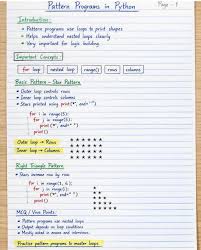 Pattern Programs in Python
Page - 1
Introduction:
• Pattern programs use loops to print shapes
• Helps understand nested loops clearly
• Very important for logic building
Important Concepts:
for loop | nested loop | range() | rows | columns
Basic Pattern - Star Pattern
• Outer loop controls rows
• Inner loop controls columns
• Stars printed using print("*", end=" ")
for i in range(5):
for j in range(5):
print("*", end=" ")
print()
Outer loop → Rows
Inner loop → Columns
* * * * *
* * * * *
* * * * *
Right Triangle Pattern
• Stars increase row by row
for i in range(1, 6):
for j in range(i):
print("*", end=" ")
print()
MCQ / Viva Points:
• Pattern programs use nested loops
• Output depends on loop conditions
• Mostly asked in exams and interviews
Practice pattern programs to master loops.